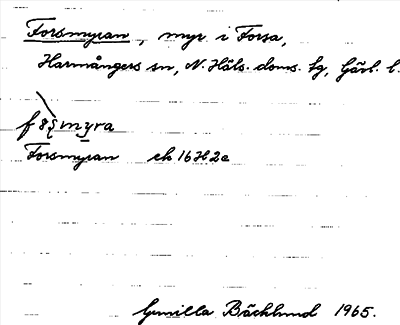 Forsmyran, myr i Forsa,
Harmångers sn, N. Häls. doms. tg, Gävl. l.
Forsmyran ek 16H2e
Gunilla Bäcklund 1965.